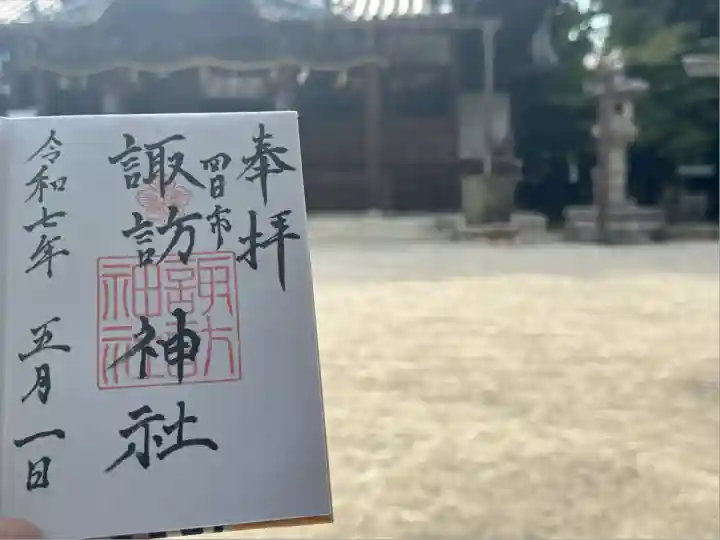 奉拝
四日市
諏訪神社
諏訪神社
令和七年 五月一日